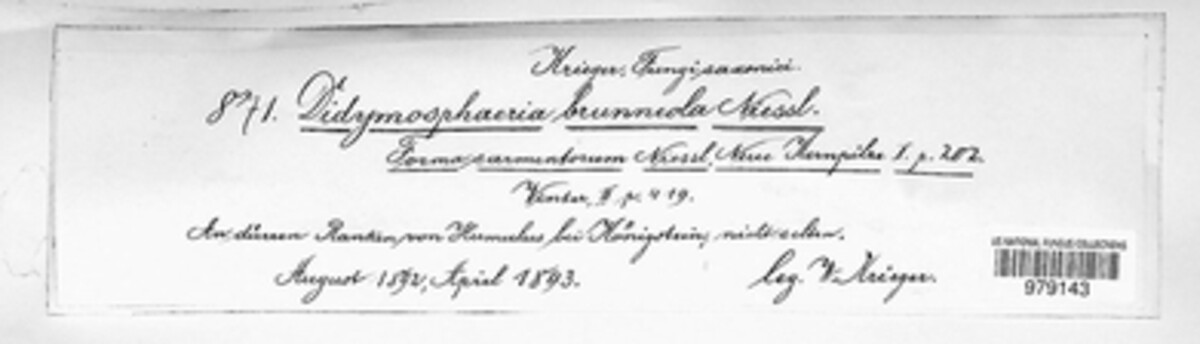 Krieger, Fungi saxonici.
871. Didymosphaeria brunneola Niessl.
Forma sarmentorum Niessl, Neue Kernpilze I. p. 202.
Winter, II p. 419.
An dürren Ranken von Humulus bei Königstein, nicht selten.
August 1892, April 1893.
leg. W. Krieger.
US NATIONAL FUNGUS COLLECTIONS
979143